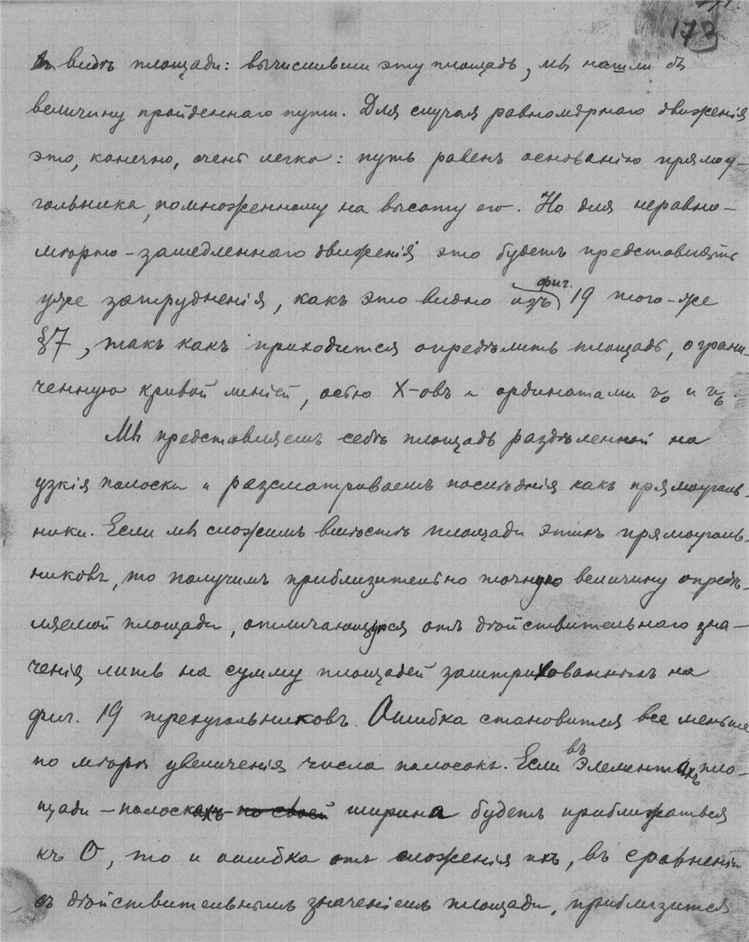 173
въ видѣ площади: вычисливши эту площадь, мы нашли бъ
величину пройденнаго пути. Для случая равномѣрнаго движенія
это, конечно, очень легко: путь равенъ основанію прямоу-
гольника, помноженному на высоту его. Но для неравно-
мѣрно-замедленнаго движенія это будетъ представлять
уже затрудненія, какъ это видно изъ фиг. 19 того-же
§7, такъ какъ приходится опредѣлить площадь, ограни-
ченную кривой линіей, осью X-овъ и ординатами v₀ и
Мы представляемъ себѣ площадь раздѣленной на
узкія полоски и разсматриваемъ послѣднія какъ прямоуголь-
ники. Если мы сложимъ вмѣстѣ площади этихъ прямоуголь-
никовъ, то получимъ приблизительно точную величину опредѣ-
ляемой площади, отличающуюся отъ дѣйствительнаго зна-
ченія лишь на сумму площадей заштрихованныхъ на
фиг. 19 треугольниковъ. Ошибка становится все меньше
по мѣрѣ увеличенія числа полосокъ. Если въ элементахъ пло-
щади - полоскахъ по своей ширина будетъ приближаться
къ 0, то и ошибка отъ сложенія ихъ, въ сравненіи
съ дѣйствительнымъ значеніемъ площади, приблизится